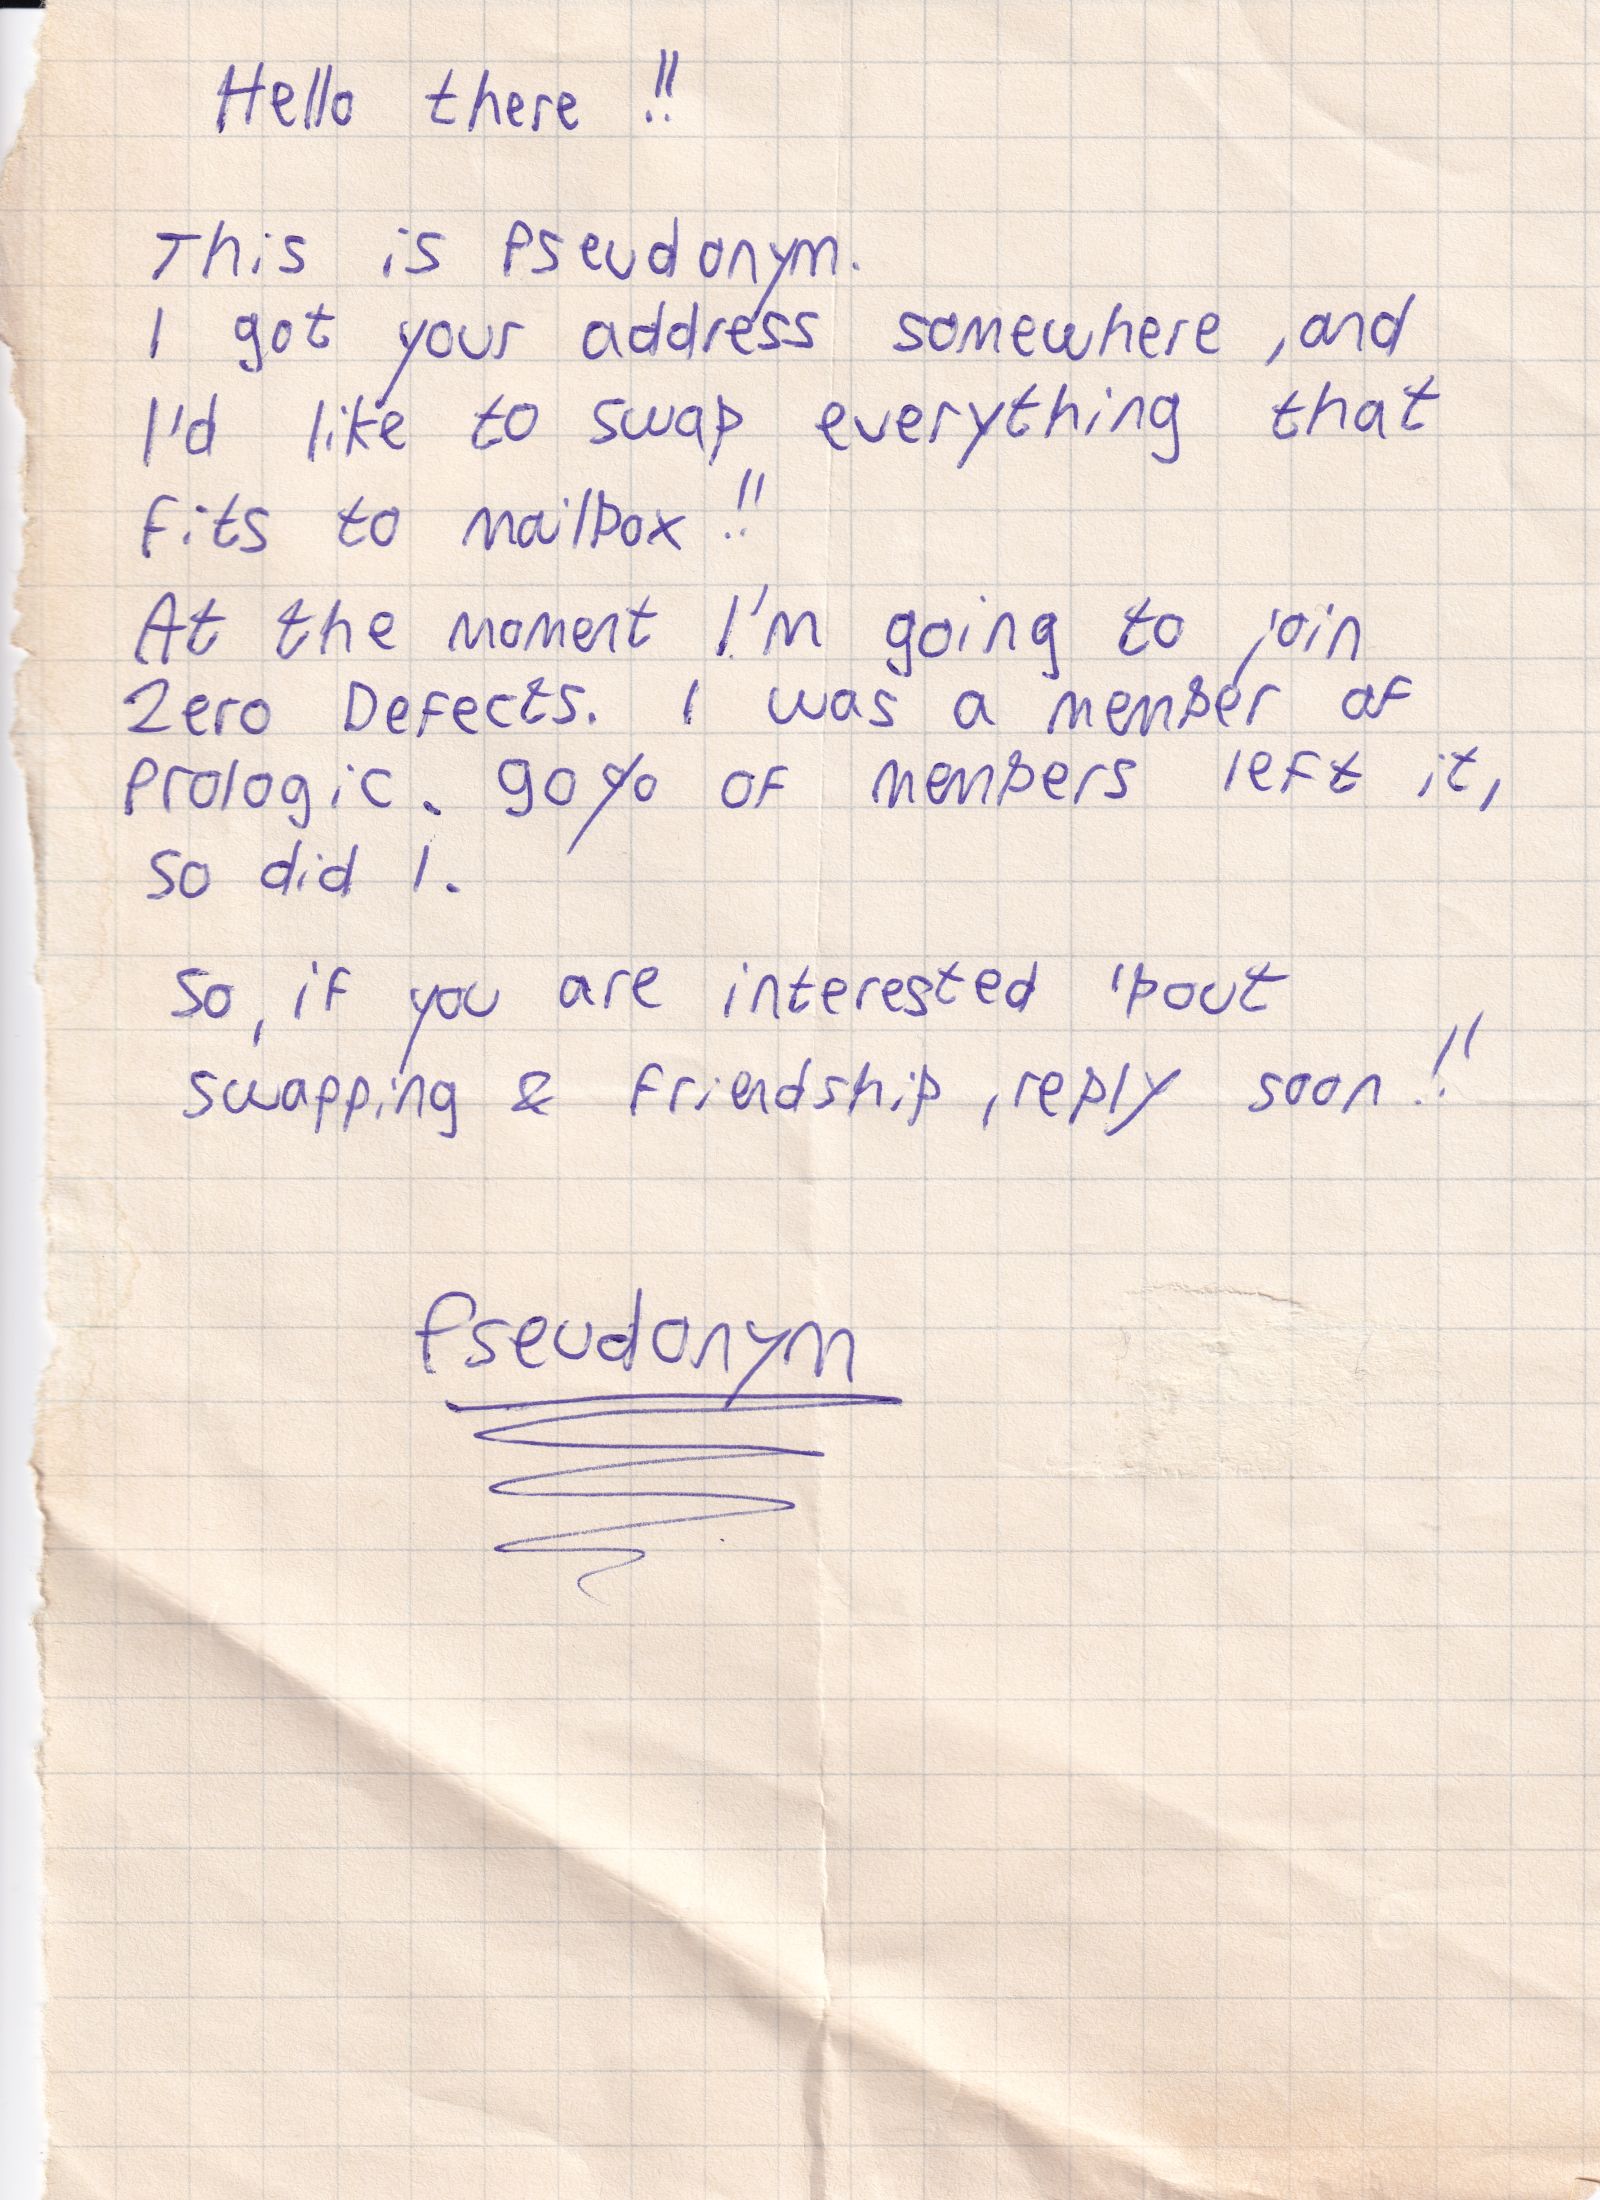 Hello there !!
This is Pseudonym.
I got your address somewhere, and
I'd like to swap everything that
fits to mailbox !!
At the moment I'm going to join
Zero Defects. I was a member of
Prologic. 90% of members left it,
so did I.
So, if you are interested 'bout
swapping & friendship, reply soon !!
Pseudonym